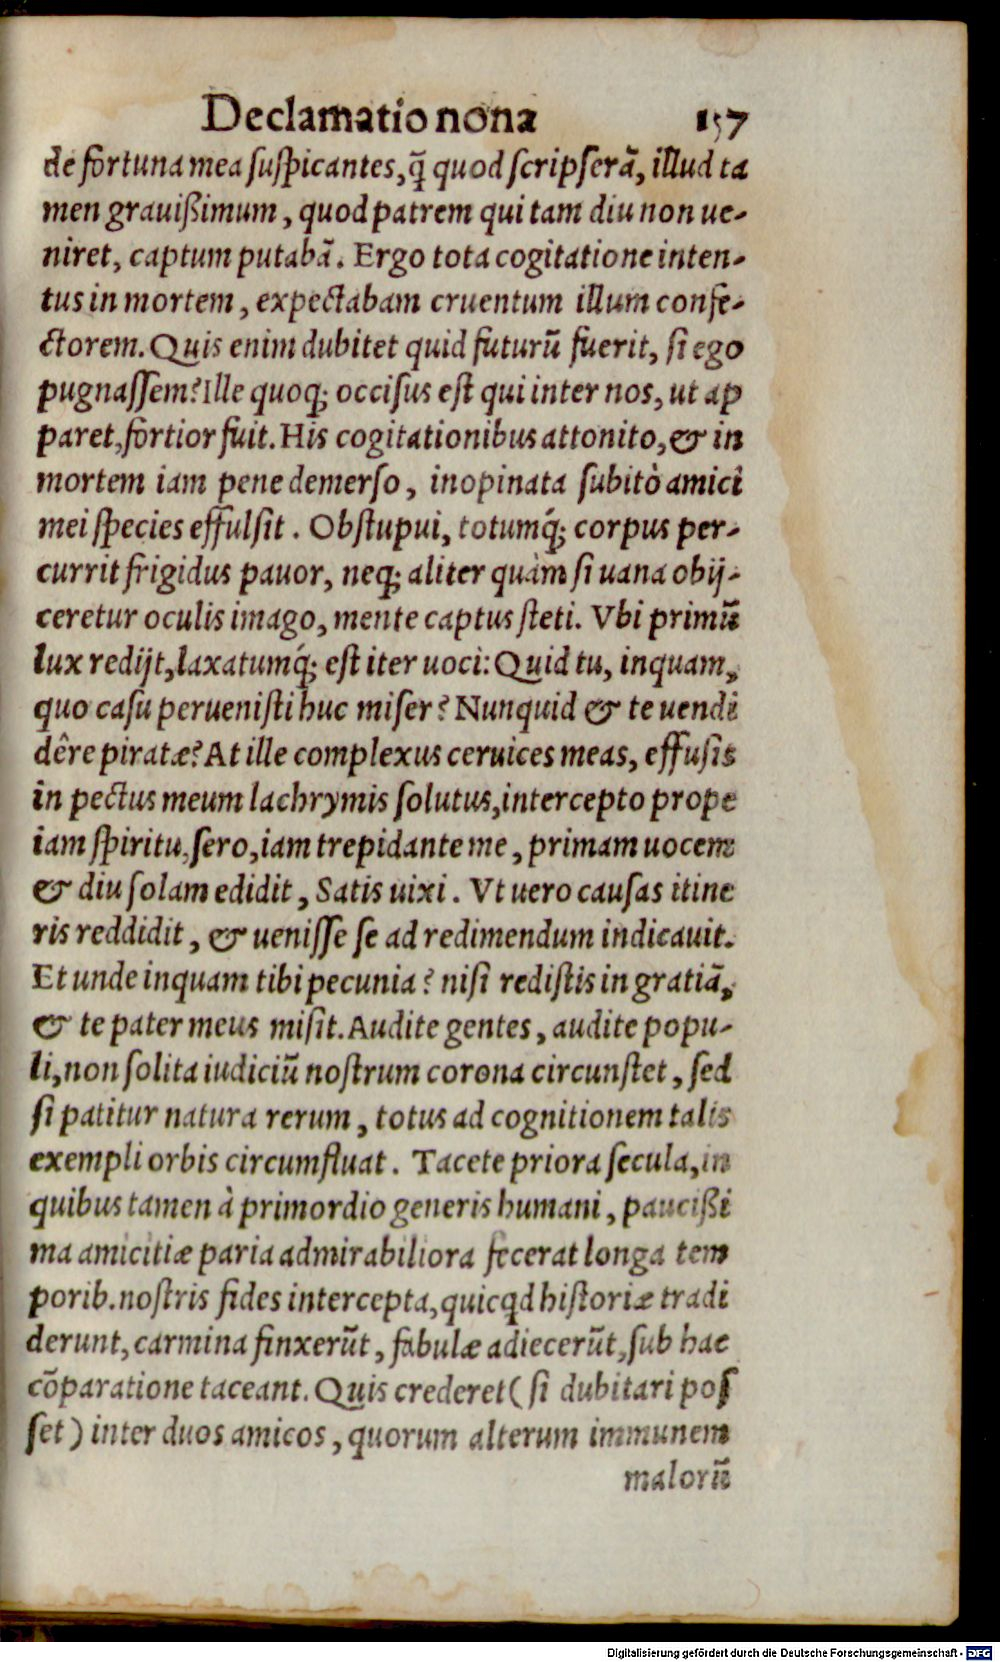 Declamatio nona 157
de fortuna mea ſuſpicantes, q̃ quod ſcripſerã, illud ta
men grauißimum, quod patrem qui tam diu non ue-
niret, captum putabã. Ergo tota cogitatione inten-
tus in mortem, expectabam cruentum illum confe-
ctorem. Quis enim dubitet quid futurũ fuerit, ſi ego
pugnaſſem? Ille quoq; occiſus eſt qui inter nos, ut ap
paret, fortior fuit. His cogitationibus attonito, & in
mortem iam pene demerſo, inopinata ſubitò amici
mei ſpecies effulſit. Obſtupui, totumq́; corpus per-
currit frigidus pauor, neq; aliter quàm ſi uana obij-
ceretur oculis imago, mente captus ſteti. Vbi primũ
lux redijt, laxatumq́; eſt iter uoci: Quid tu, inquam,
quo caſu perueniſti huc miſer? Nunquid & te uendi
dêre piratæ? At ille complexus ceruices meas, effuſis
in pectus meum lachrymis ſolutus, intercepto prope
iam ſpiritu, ſero, iam trepidante me, primam uocem
& diu ſolam edidit, Satis uixi. Vt uero cauſas itine
ris reddidit, & ueniſſe ſe ad redimendum indicauit.
Et unde inquam tibi pecunia? niſi rediſtis in gratiã,
& te pater meus miſit. Audite gentes, audite popu-
li, non ſolita iudiciũ noſtrum corona circunſtet, ſed
ſi patitur natura rerum, totus ad cognitionem talis
exempli orbis circumfluat. Tacete priora ſecula, in
quibus tamen à primordio generis humani, paucißi
ma amicitiæ paria admirabiliora fecerat longa tem
porib. noſtris fides intercepta, quicqd hiſtoriæ tradi
derunt, carmina finxerũt, fabulæ adiecerũt, ſub hac
cõparatione taceant. Quis crederet (ſi dubitari poſ
ſet) inter duos amicos, quorum alterum immunem
malorũ
Digitalisierung gefördert durch die Deutsche Forschungsgemeinschaft - DFG